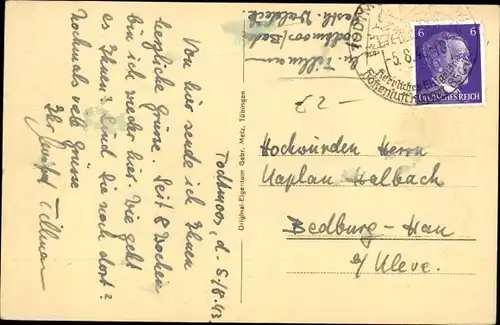 Todtmoos, d. 5/8.43
Von hier sende ich Ihnen
herzliche Grüsse. Seit 8 Wochen
bin ich wieder hier. Wie geht
es Ihnen? Sind Sie noch dort?
Nochmals viele Grüsse
Ihr
Tillmann
Original-Eigentum Gebr. Metz, Tübingen
Tillmann
Todtmoos/Baden
Waldeck
-5.8.
Herrlicher
Höhenluft
6 6
DEUTSCHES REICH
Hochwürden Herrn
Kaplan Halbach
Bedburg-Hau
b/ Kleve.